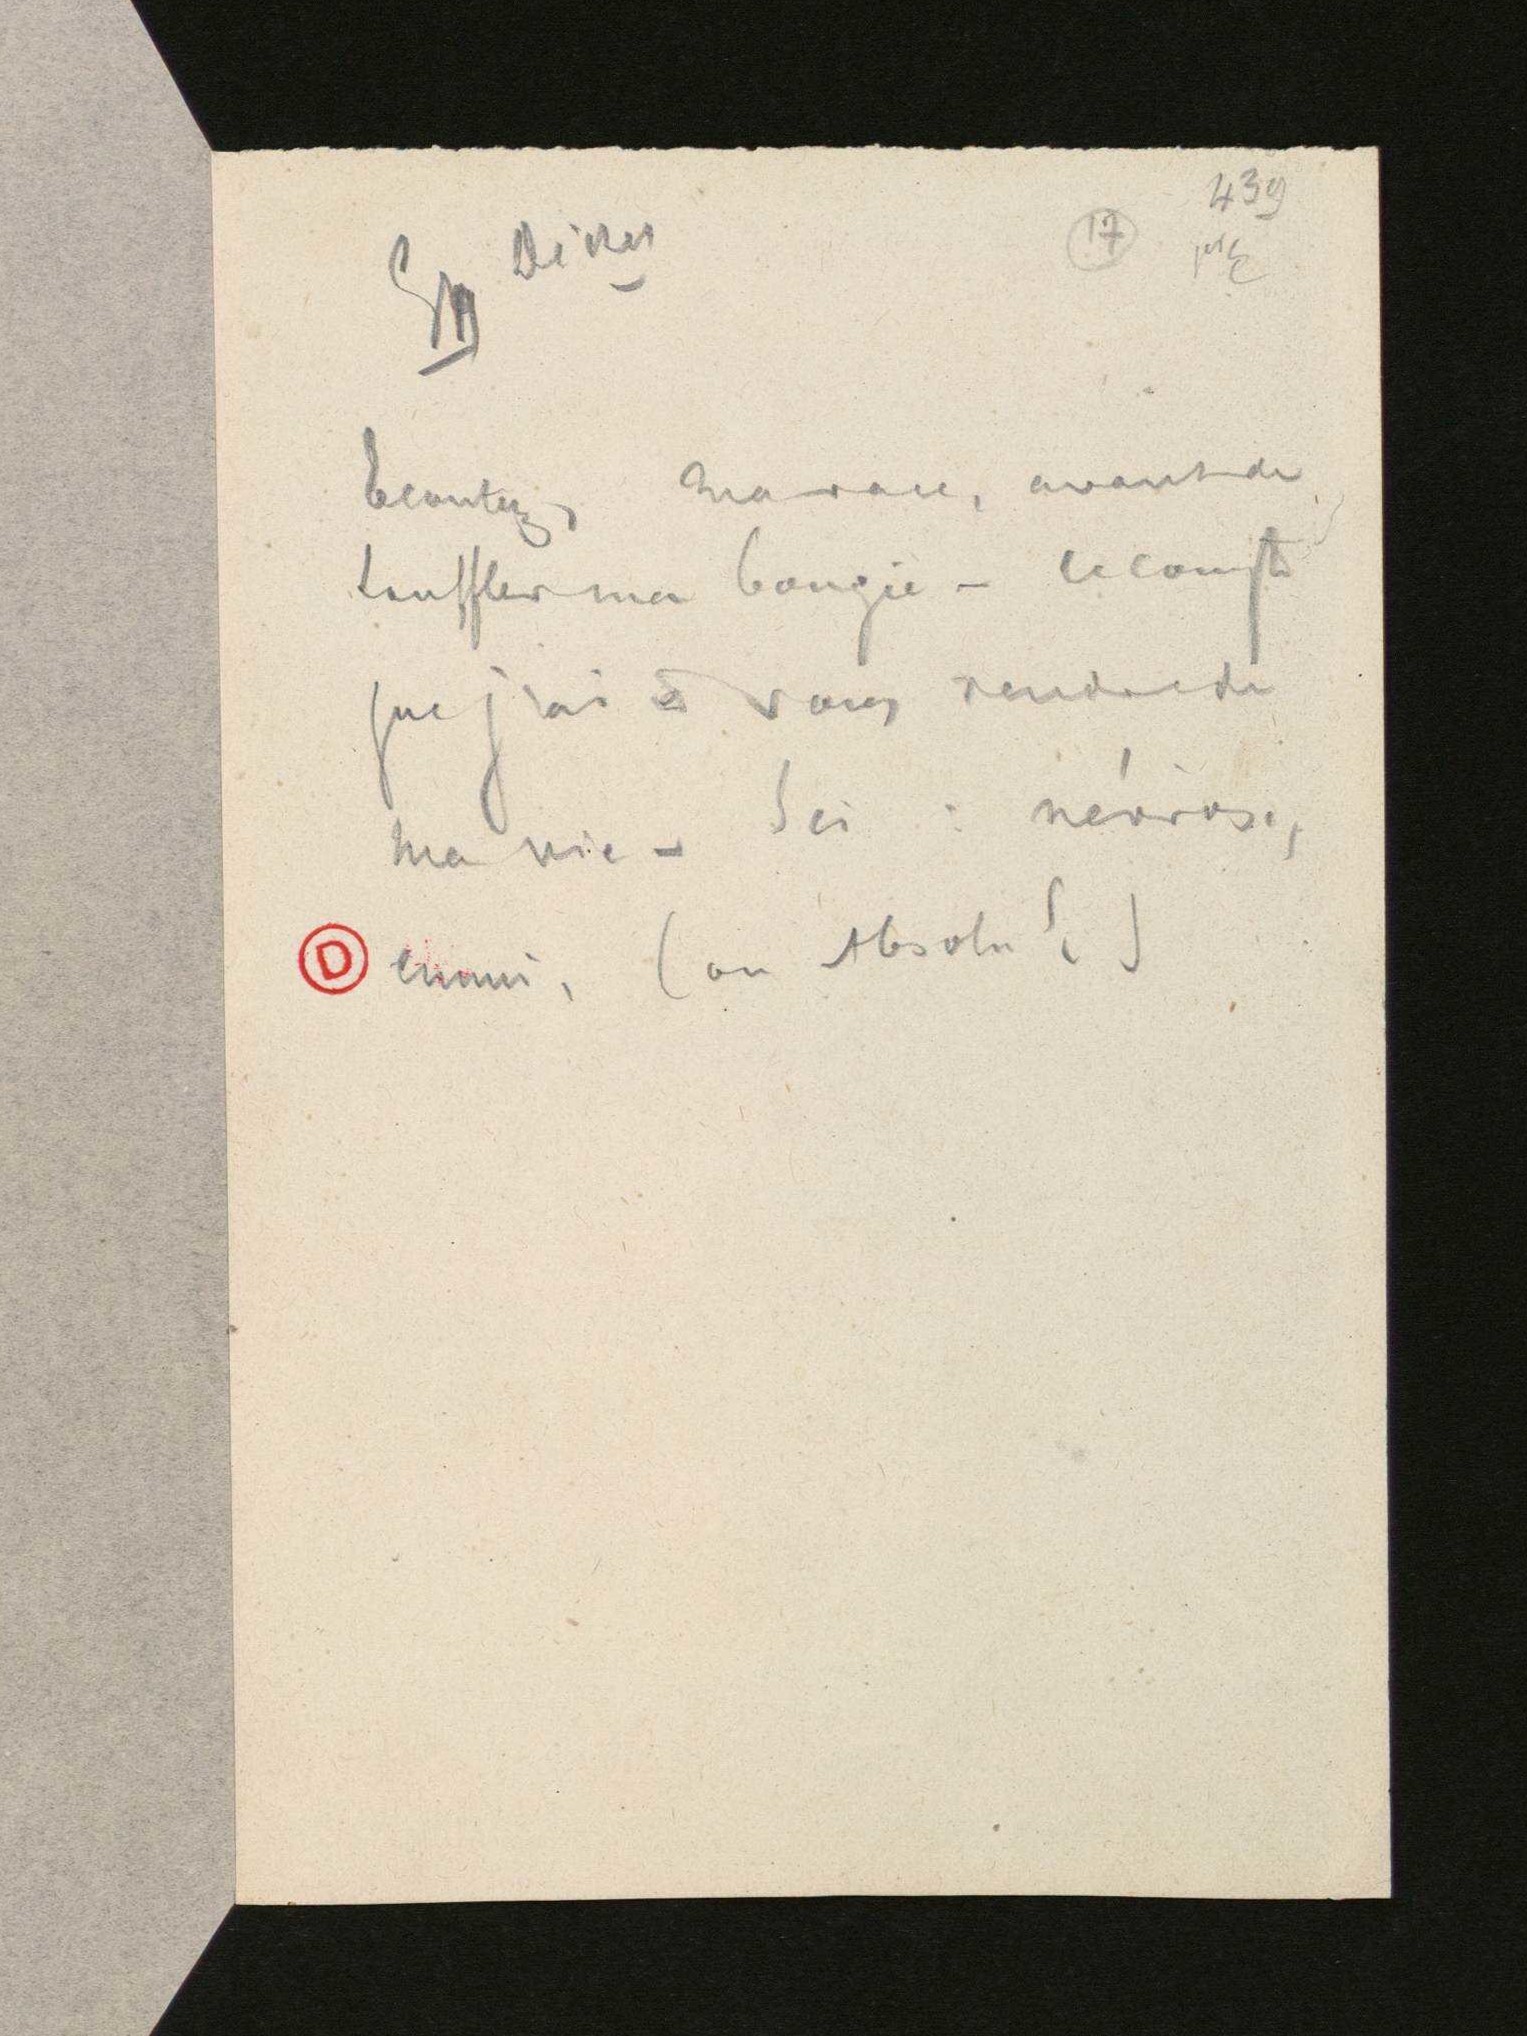 439
17
Divers
Ecoutez, ma race, avant de
souffler ma bougie – le compte
que j'ai à vous rendre de
ma vie – Ici : névrose,
ennui, (ou Absolu ! )
D